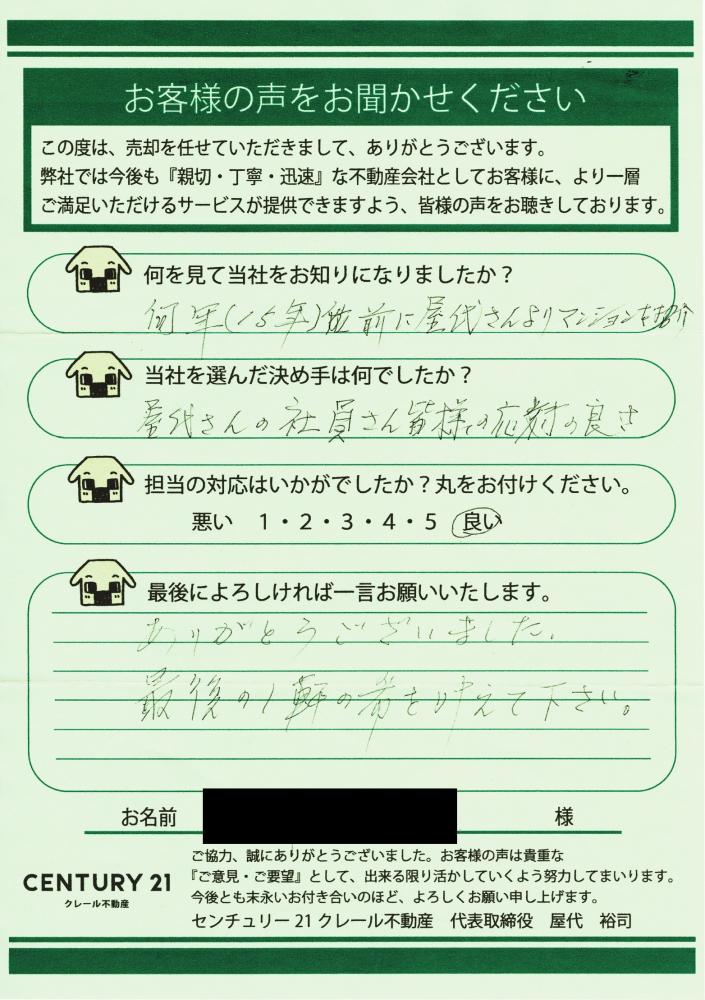 お客様の声をお聞かせください
この度は、売却を任せていただきまして、ありがとうございます。
弊社では今後も『親切・丁寧・迅速』な不動産会社としてお客様に、より一層
ご満足いただけるサービスが提供できますよう、皆様の声をお聴きしております。
何を見て当社をお知りになりましたか？
何年(15年)位前に屋代さんよりマンションを紹介
当社を選んだ決め手は何でしたか？
屋代さんの社員さん皆様の応対の良さ
担当の対応はいかがでしたか？丸をお付けください。
悪い 1・2・3・4・5 良い
最後によろしければ一言お願いいたします。
ありがとうございました。
最後の1軒の希を叶えて下さい。
お名前 様
ご協力、誠にありがとうございました。お客様の声は貴重な
『ご意見・ご要望』として、出来る限り活かしていくよう努力してまいります。
今後とも末永いお付き合いのほど、よろしくお願い申し上げます。
CENTURY 21
クレール不動産
センチュリー21 クレール不動産 代表取締役 屋代 裕司